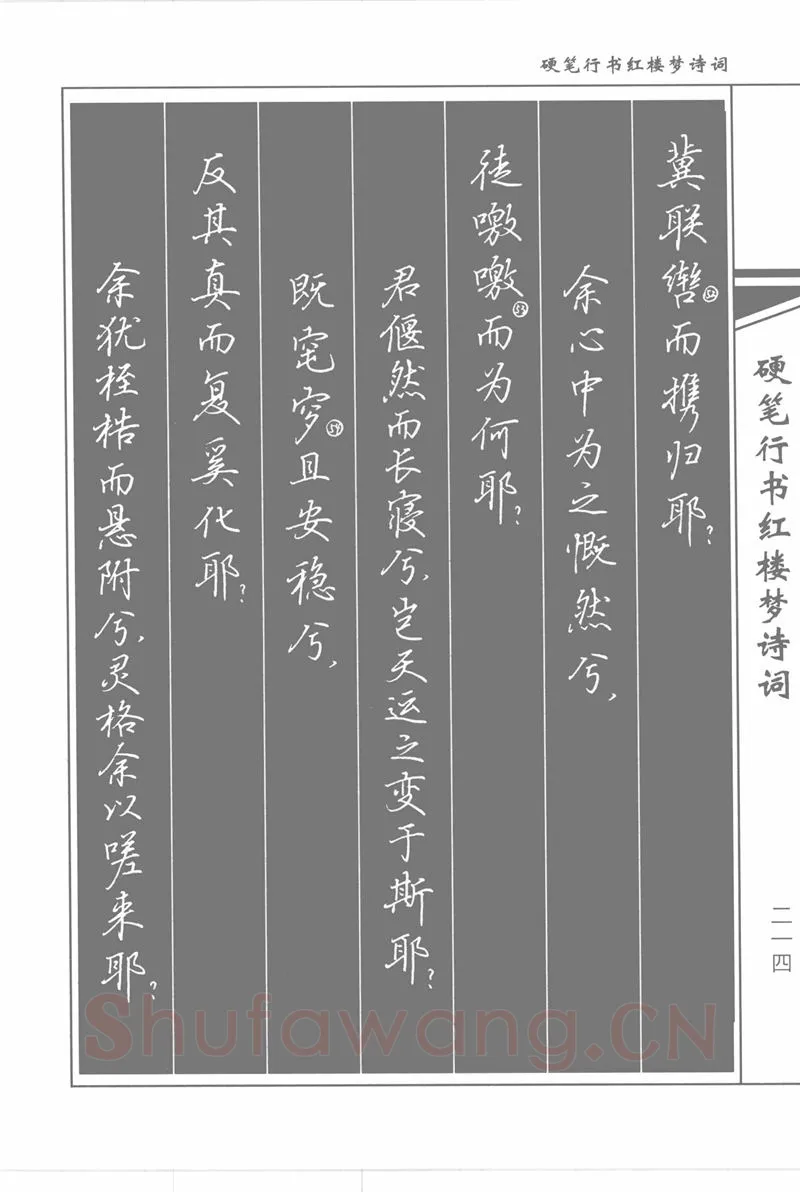 硬笔行书红楼梦诗词
冀联辔㊾而携归耶?
余心中为之慨然兮,
徒噭噭㊾而为何耶?
君偃然而长寝兮,岂天运之变于斯耶?
既窀穸㊾且安稳兮,
反其真而复奚化耶?
余犹桎梏而悬附兮,灵格余以嗟来耶?
硬笔行书红楼梦诗词
二一四
Shufawang.CN